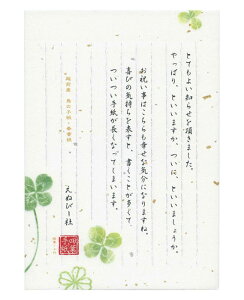 とてもよい知らせを頂きました。
やっぱり、といいますか、ついに、といいましょうか。
お祝い事はこちらも幸せな気分になりますね。
喜びの気持ちを表すと、書くことが多くて
ついつい手紙が長くなってしまいます。
えぬびー社
四葉
手紙